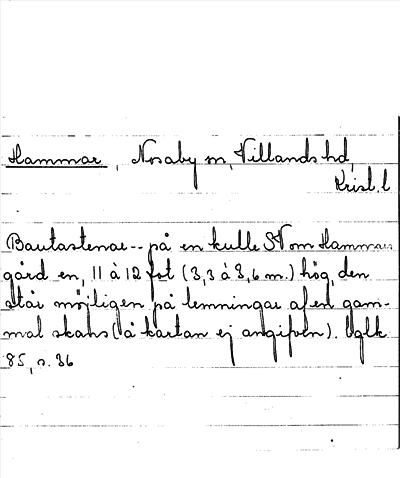 Hammar, Nosaby sn, Villands hd,
Krist. l
Bautastenar -- på en kulle SV om Hammars
gård en, 11 à 12 fot (3,3 à 3,6 m.) hög, den
står möjligen på lemningar af en gam-
mal skans (å kartan ej angifven). Uglk
85, s. 36